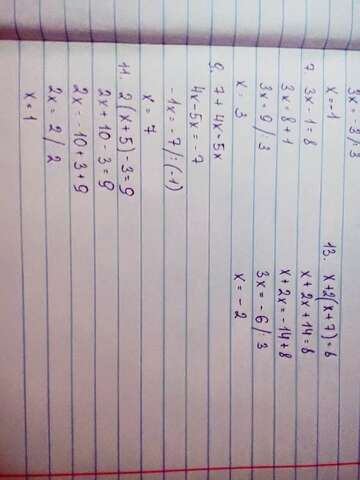 3x = -3 /:3
x = -1
7. 3x - 1 = 8
3x = 8 + 1
3x = 9 /:3
x = 3
9. 7 + 4x = 5x
4x - 5x = -7
-1x = -7 /:(-1)
x = 7
11. 2(x+5) - 3 = 9
2x + 10 - 3 = 9
2x = -10 + 3 + 9
2x = 2 /:2
x = 1
13. x + 2(x+7) = 8
x + 2x + 14 = 8
x + 2x = -14 + 8
3x = -6 /:3
x = -2